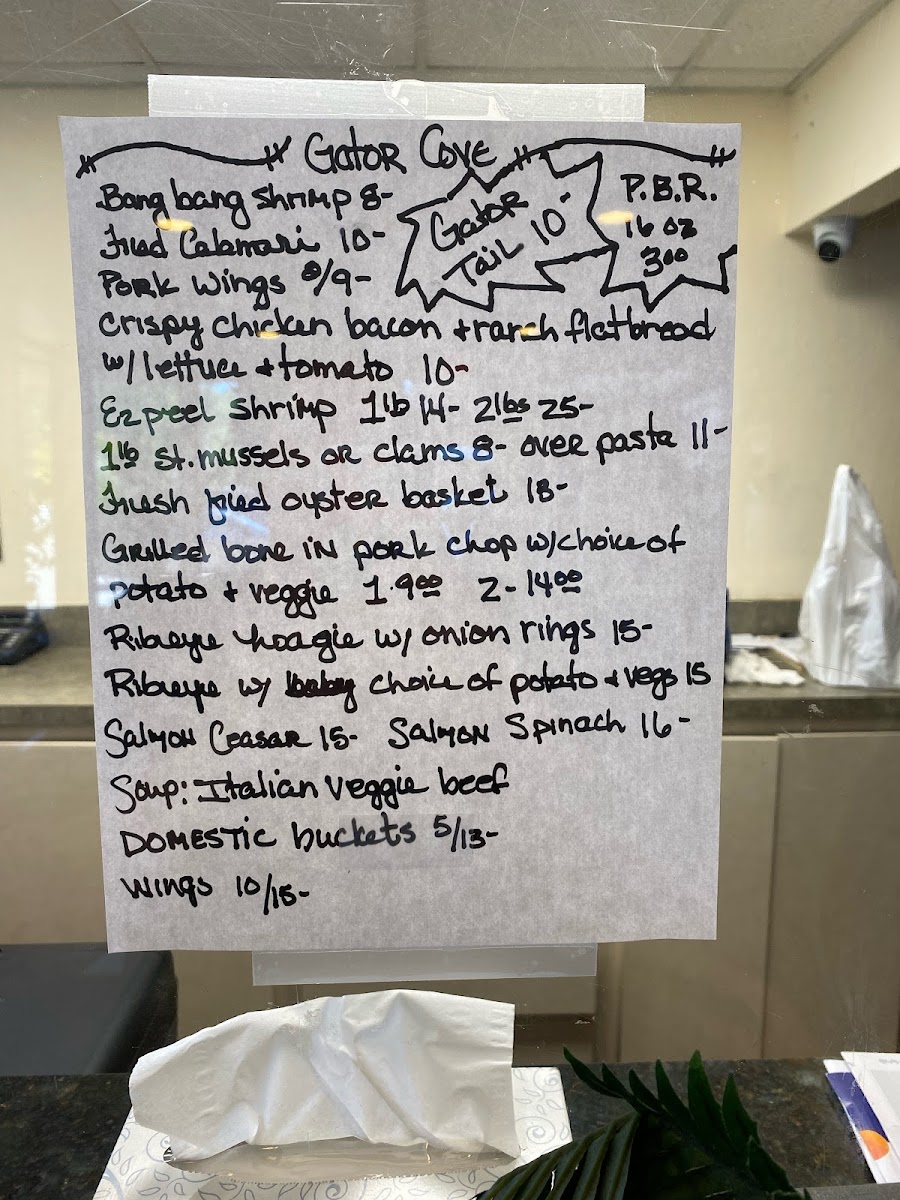 Gator Cove
Bang bang shrimp 8-
Fried Calamari 10-
Pork Wings 3/9-
Gator
Tail 10-
P.B.R.
16 oz
3.00
Crispy chicken bacon + ranch flatbread
w/ lettuce + tomato 10-
Ez peel shrimp 1lb 14- 2lbs 25-
1lb St. mussels or clams 8- over pasta 11-
Fresh fried oyster basket 18-
Grilled bone in pork chop w/ choice of
potato + veggie 1-9.00 2-14.00
Ribeye hoagie w/ onion rings 15-
Ribeye w/ choice of potato + vegs 15
Salmon Ceasar 15- Salmon Spinach 16-
Soup: Italian veggie beef
Domestic buckets 5/13-
Wings 10/15-